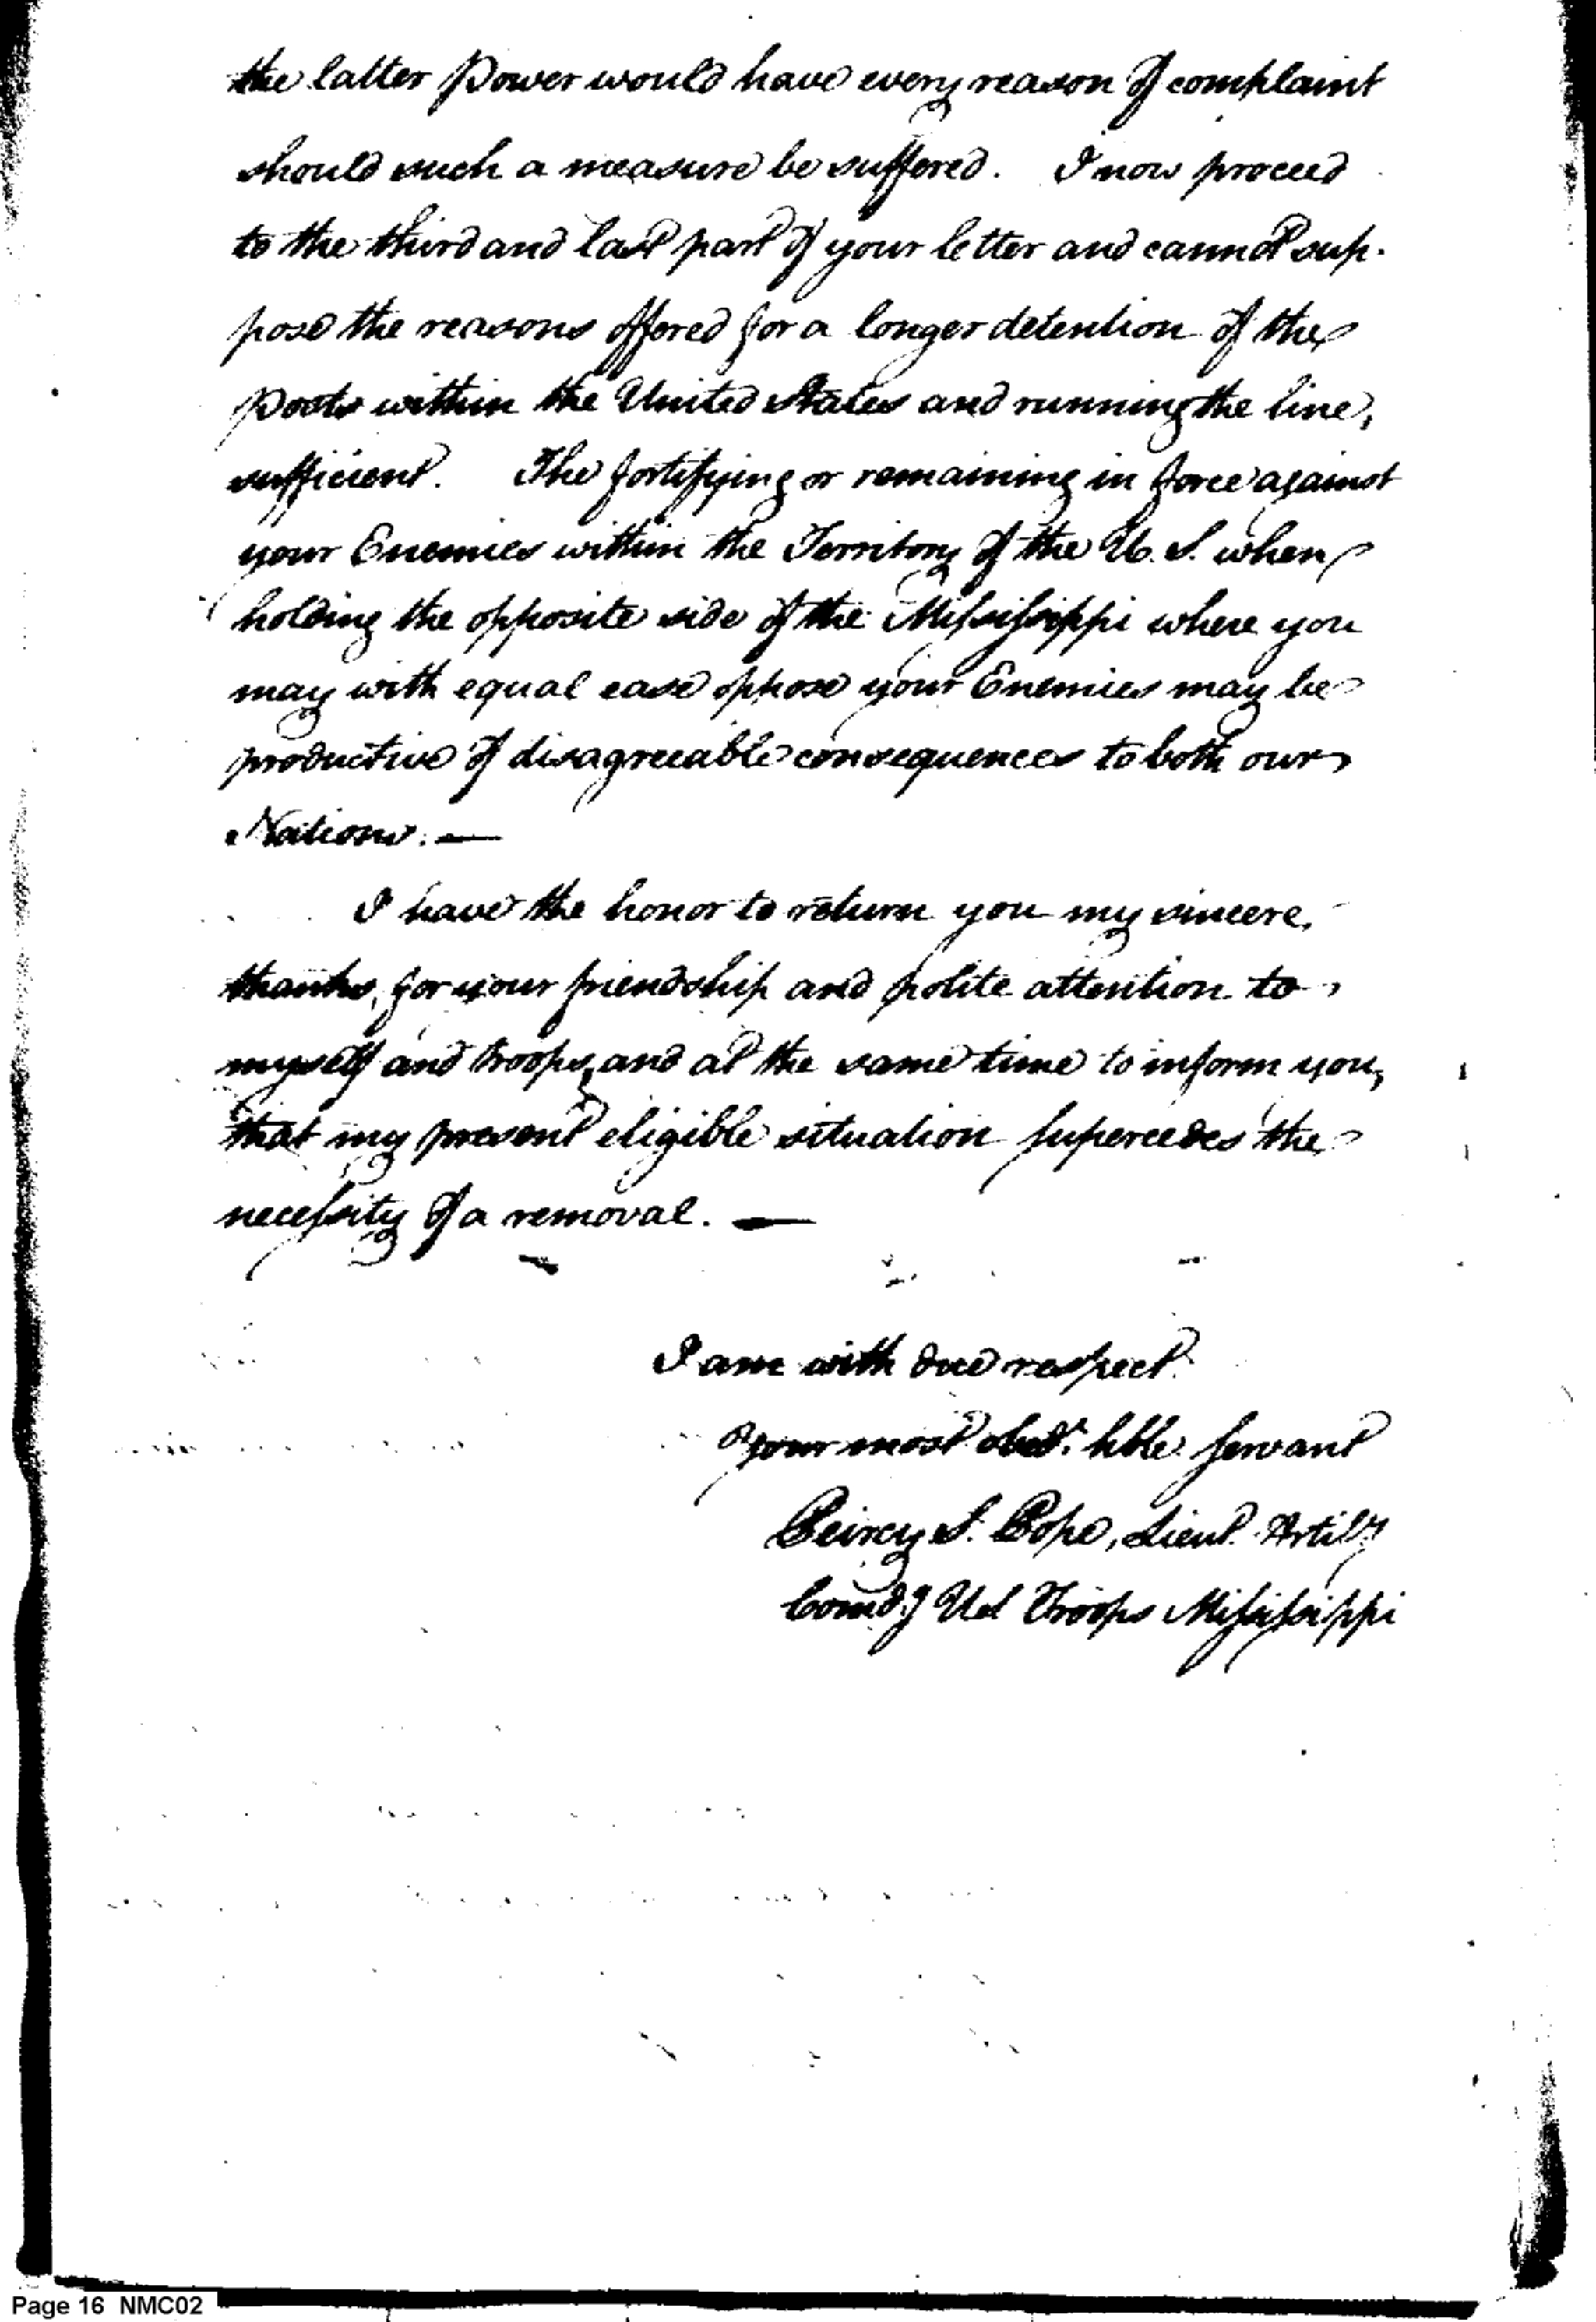 the latter Power would have every reason of complaint
should such a measure be suffered. I now proceed
to the third and last part of your letter and cannot sup-
pose the reasons offered for a longer detention of the
Posts within the United States and running the line,
sufficient. The fortifying or remaining in force against
your Enemies within the Territory of the U. S. when
holding the opposite side of the Mississippi where you
may with equal ease oppose your Enemies may be
productive of disagreeable consequences to both our
Nations. —
I have the honor to return you my sincere
thanks, for your friendship and polite attention to
myself and troops, and at the same time to inform you,
that my present eligible situation supercedes the
necessity of a removal. —
I am with due respect
Your most obedt. hble servant
Peircy S. Pope, Lieut. Artily
Comdg US Troops Mississippi
Page 16 NMC02